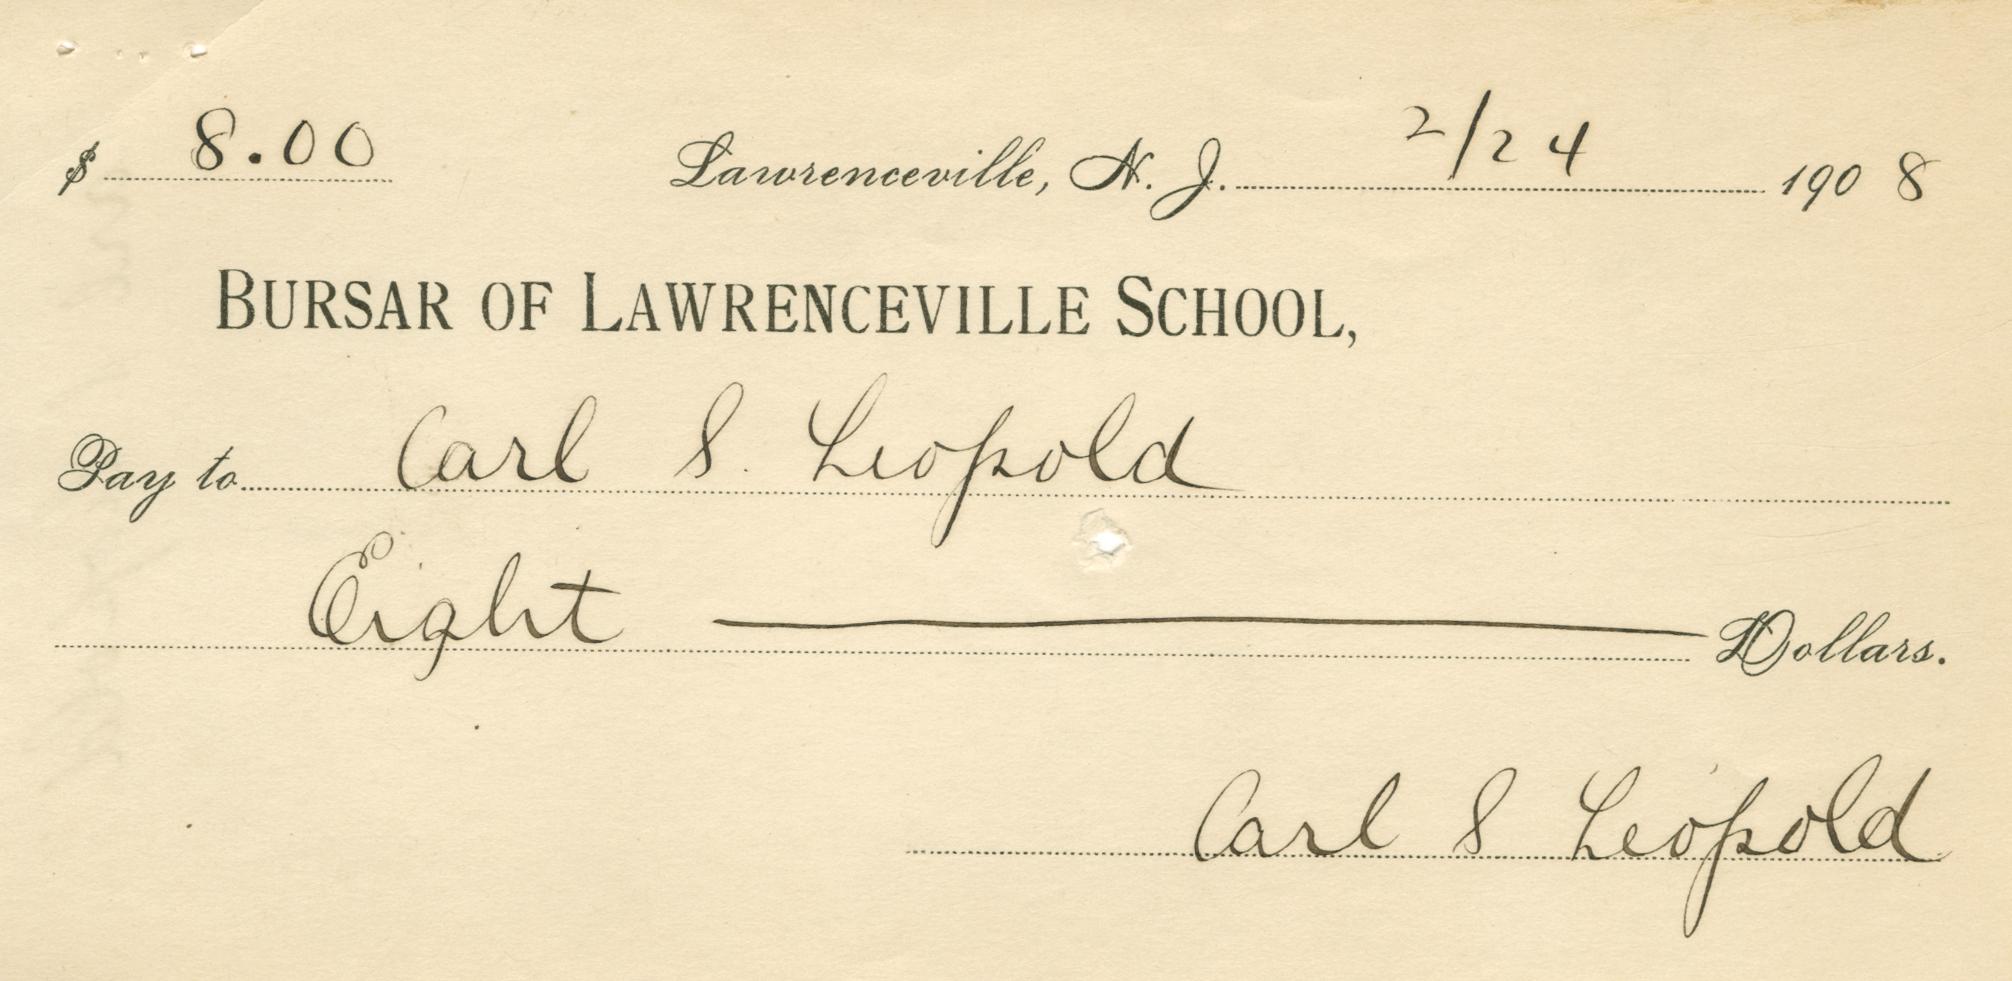 $ 8.00 Lawrenceville, N. J. 2/24 1908
BURSAR OF LAWRENCEVILLE SCHOOL,
Pay to Carl S. Leopold
Eight Dollars.
Carl S Leopold